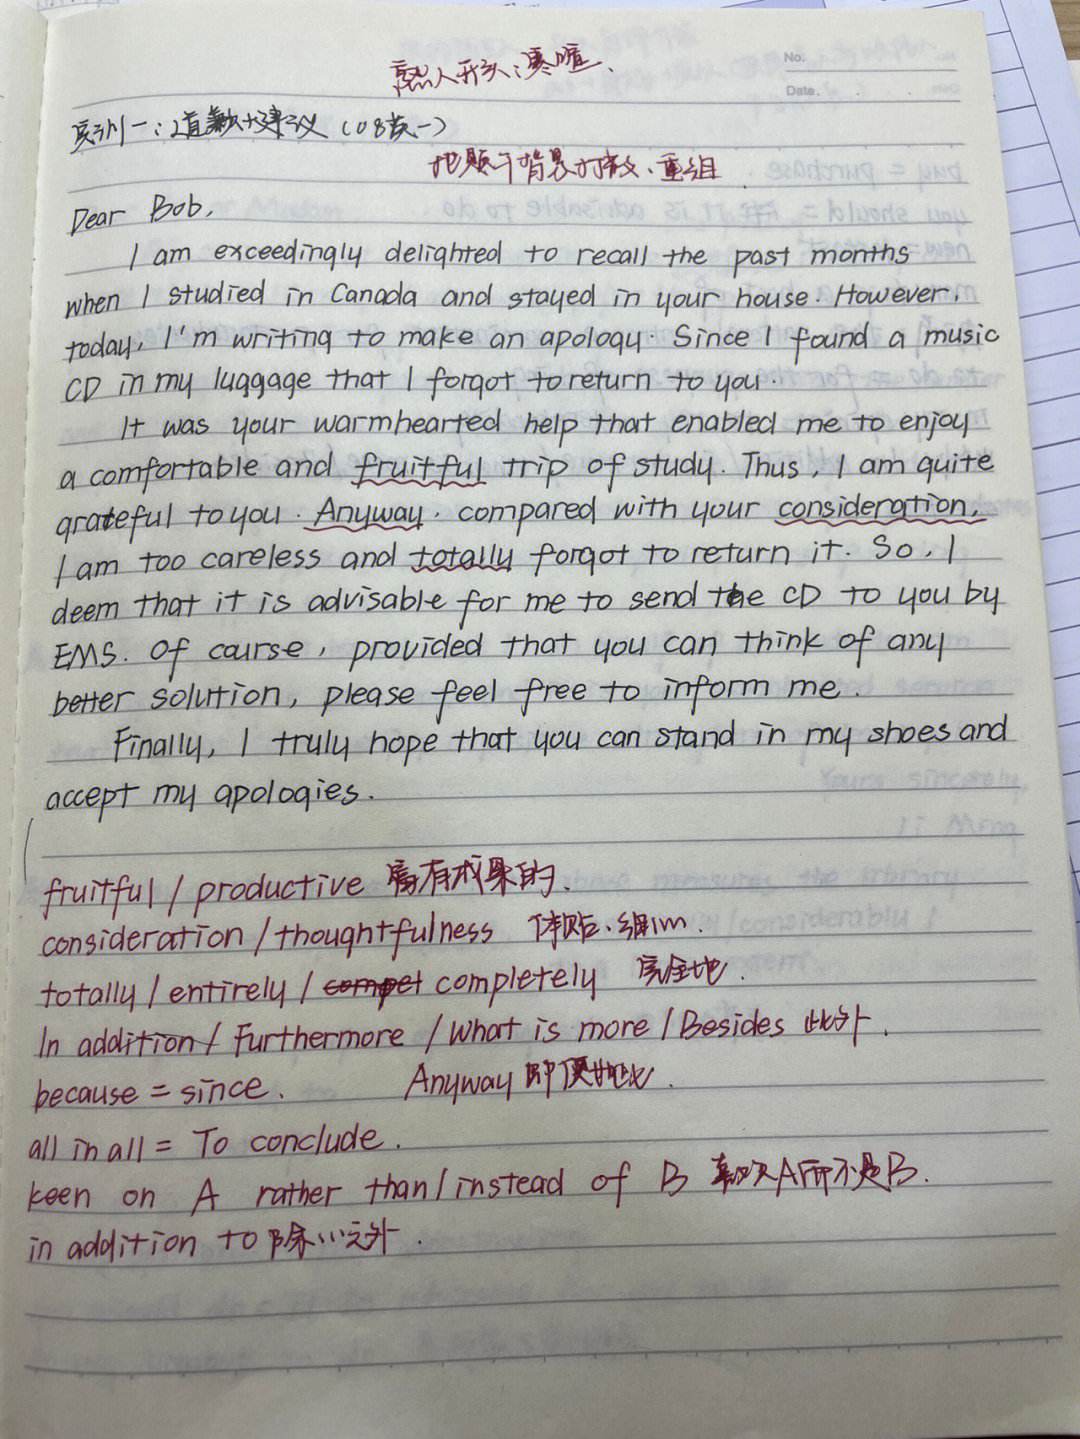 熟人开头:寒暄、
No.
Date.
实例一:道歉+建议(08英一)
把题干背景打散、重组
Dear Bob,
I am exceedingly delighted to recall the past months
when I studied in Canada and stayed in your house. However,
today, I'm writing to make an apology. Since I found a music
CD in my luggage that I forgot to return to you.
It was your warmhearted help that enabled me to enjoy
a comfortable and fruitful trip of study. Thus, I am quite
grateful to you. Anyway, compared with your consideration,
I am too careless and totally forgot to return it. So, I
deem that it is advisable for me to send the CD to you by
EMS. Of course, provided that you can think of any
better solution, please feel free to inform me.
Finally, I truly hope that you can stand in my shoes and
accept my apologies.
fruitful / productive 富有成果的、
consideration / thoughtfulness 体贴、细心.
totally / entirely / compet completely 完全地.
In addition / Furthermore / What is more / Besides 此外.
because = since. Anyway 即便如此.
all in all = To conclude.
keen on A rather than / instead of B 喜欢A而不是B.
in addition to 除…之外.